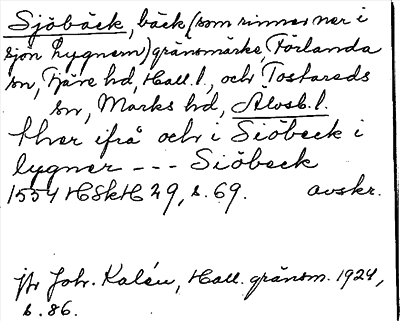 Sjöbäck, bäck (som rinner ner i
sjön Lygnern) gränsmärke, Förlanda
sn, Fjäre hd, Hall. l., och Tostareds
sn, Marks hd, Älvsb. l.
thær ifrå och i Siöbeck i
lygner --- Siöbeck
1554 HSkH 29, s. 69. avskr.
jfr Joh. Kalén, Hall. gränsm. 1924,
s. 86.